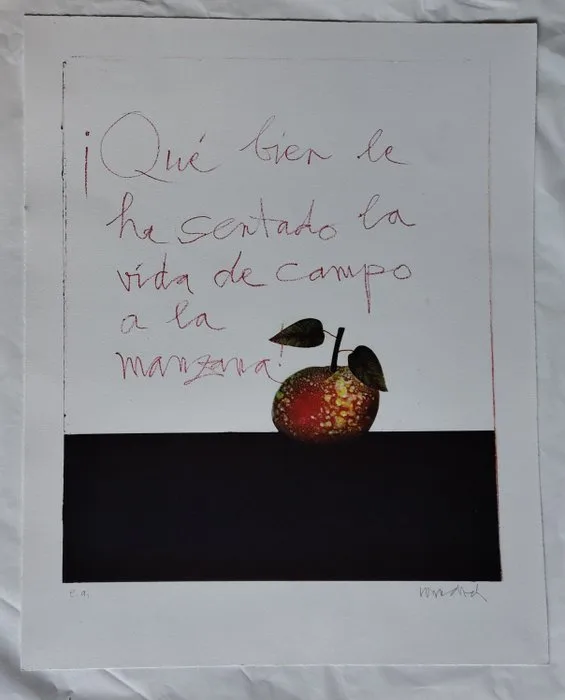 ¡Qué bien le
ha sentado la
vida de campo
a la
manzana!
e.a.